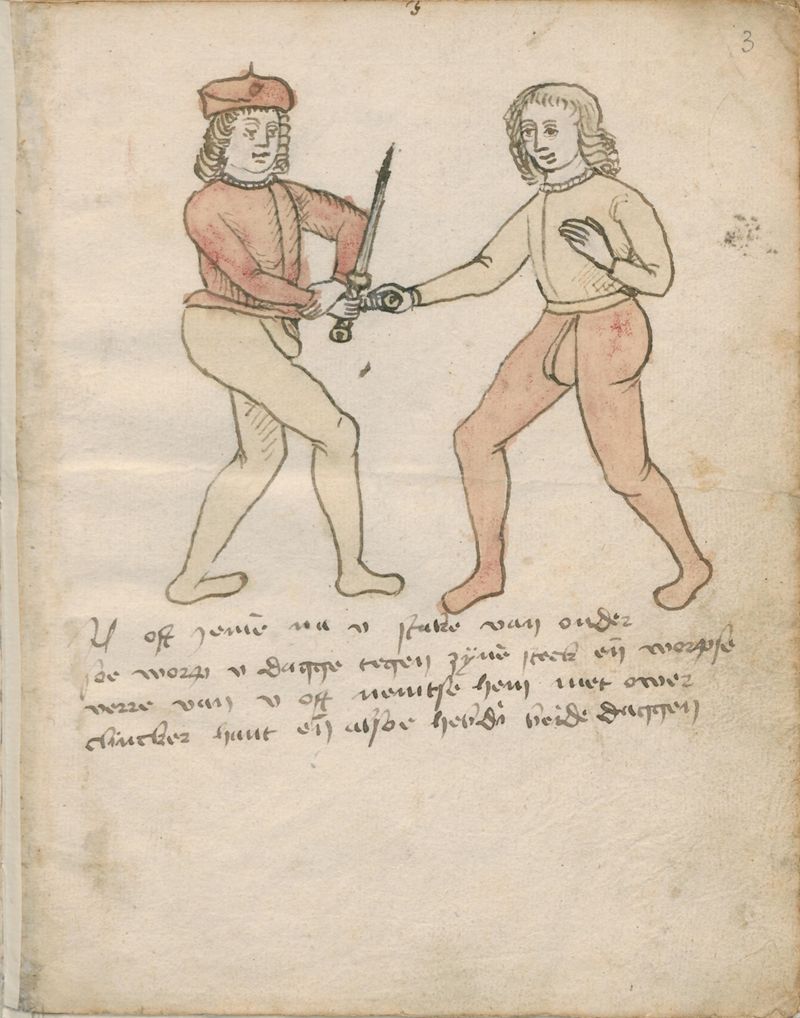 3
oft yemē na v stake van onder
soe worp v dagge tegen zynē steck en̄ worpse
verre van v oft nemtse hem met ower
clincker hant en̄ alsoe hebdi beide daggen